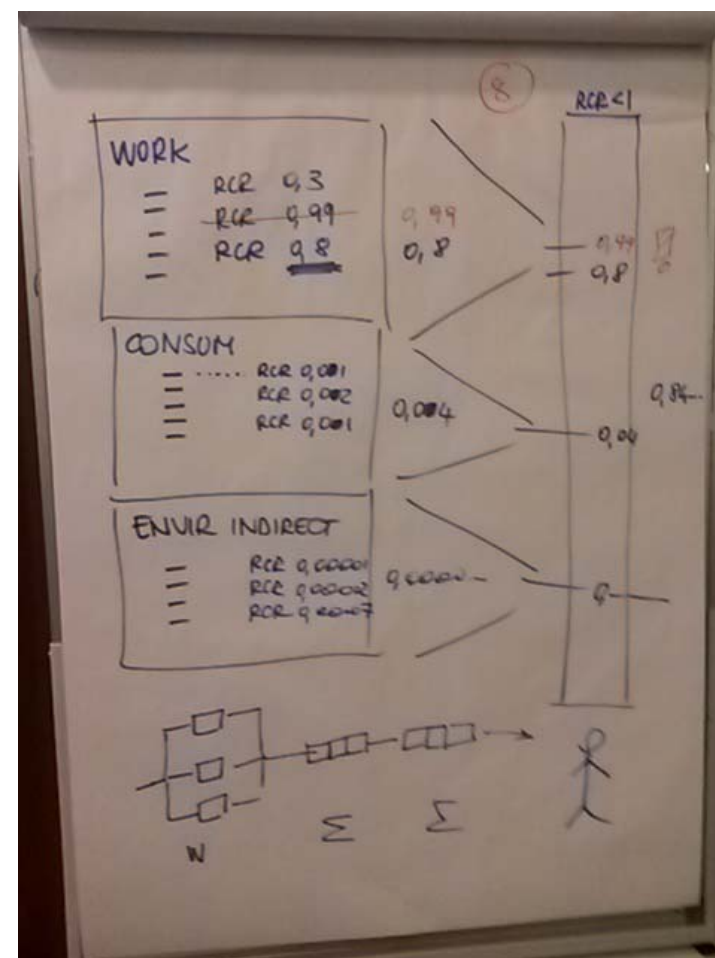 8
RCR<1
WORK
RCR 0,3
RCR 0,99
RCR 0,8
0,99
0,8
0,99
0,8
CONSUM
RCR 0,001
RCR 0,002
RCR 0,001
0,004
0,04
0,84...
ENVIR INDIRECT
RCR 0,00001
RCR 0,00002
RCR
W
Σ
Σ